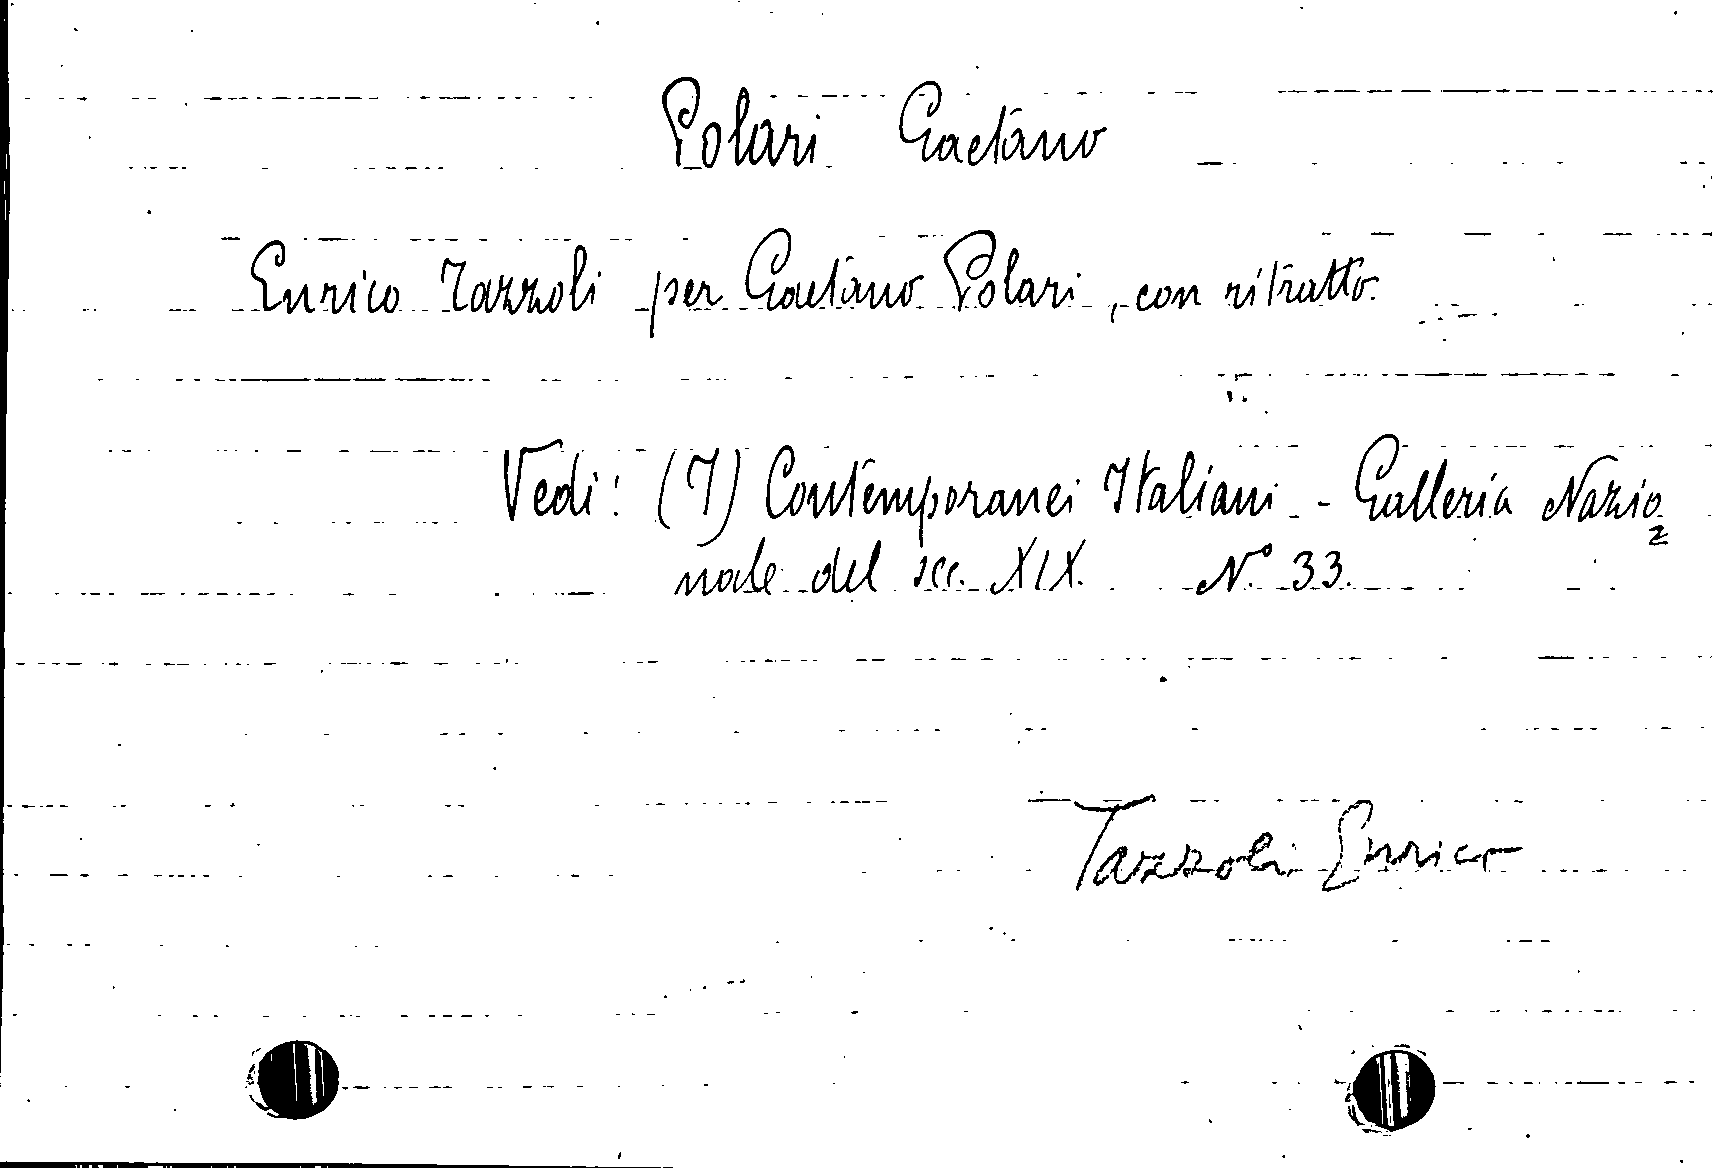 Polari Gaetano
Enrico Tazzoli per Gaetano Polari, con ritratto.
Vedi: (I) Contemporanei Italiani - Galleria Nazio=
nale del sec. XIX. N.° 33.
Tazzoli Enrico